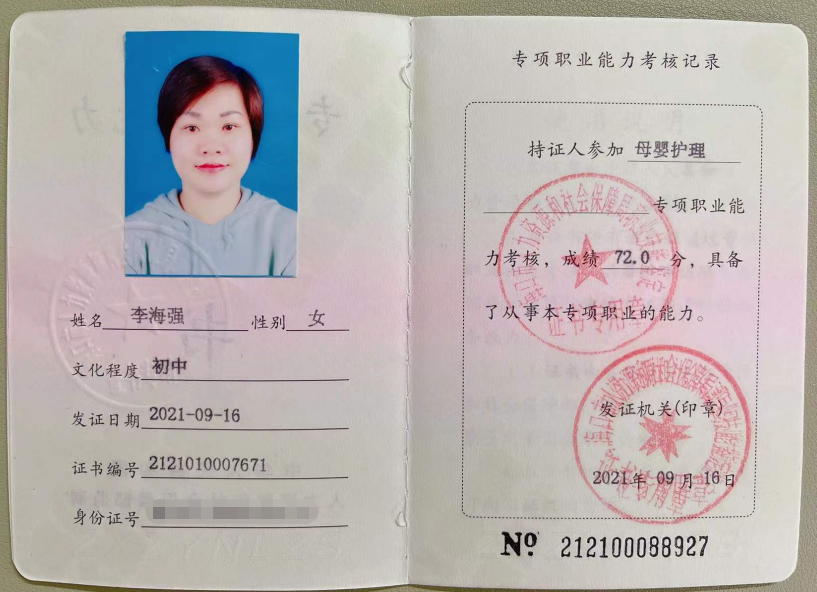 姓名 李海强 性别 女
文化程度 初中
发证日期 2021-09-16
证书编号 2121010007671
身份证号
专项职业能力考核记录
持证人参加 母婴护理
专项职业能
力考核，成绩 72.0 分，具备
了从事本专项职业的能力。
证书专用章
发证机关(印章)
2021年 09月 16日
Nº 212100088927